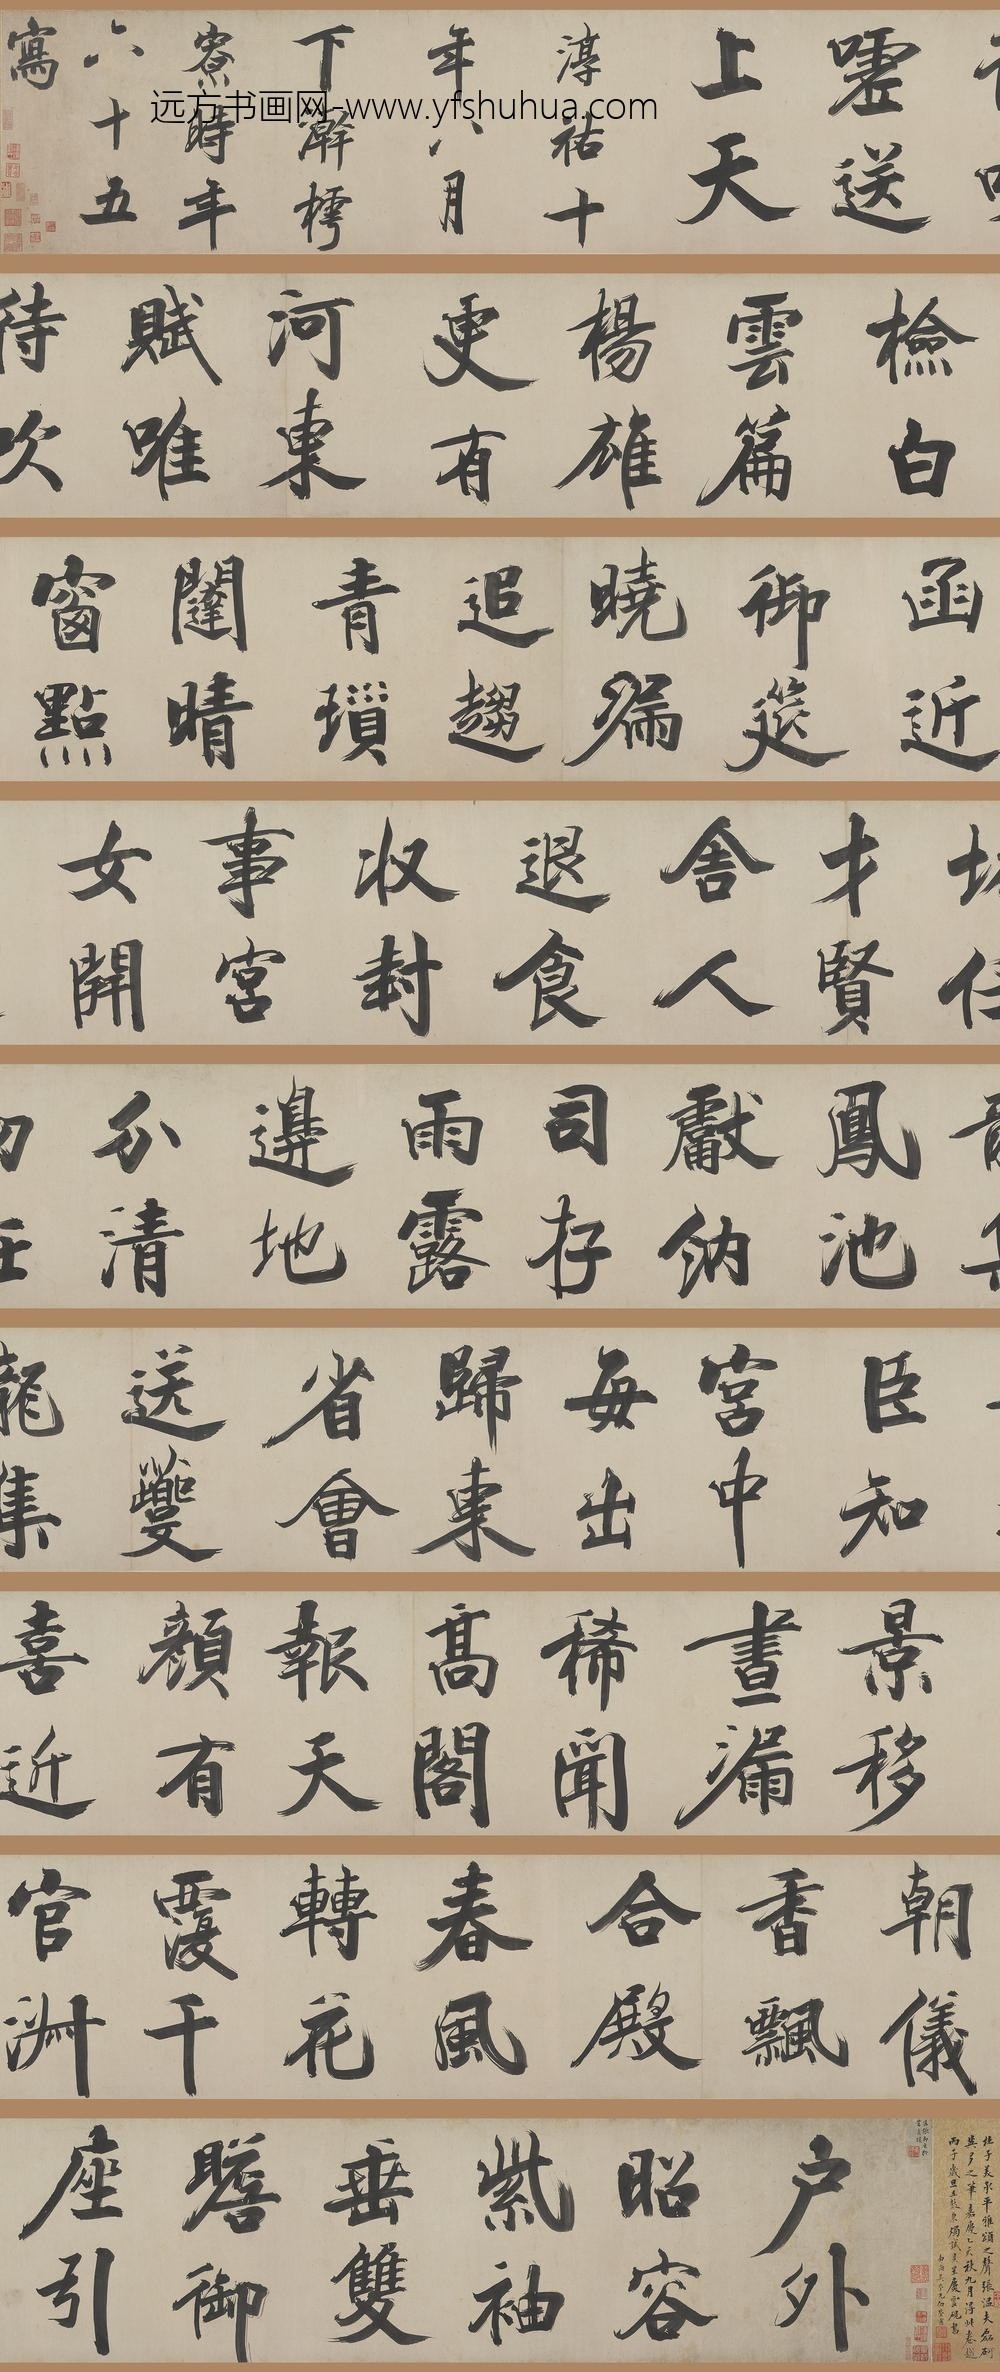 户外
昭容
紫袖
垂雙
瞻御
座引
朝儀
香飄
合殿
春風
轉花
覆千
官淑
景移
晝漏
稀聞
高閣
報天
顔有
喜近
臣知
宮中
每出
歸東
省會
送夔
龍集
鳳池
獻納
司存
雨露
邊地
分清
切任
才賢
舍人
退食
收封
事宮
女開
函近
御筵
曉漏
追趨
青瑣
闥晴
窗點
檢白
雲篇
楊雄
更有
河東
賦唯
待吹
嘘送
上天
淳祐十
年八月
下澣樗
寮時年
六十五
寫
远方书画网-www.yfshuhua.com